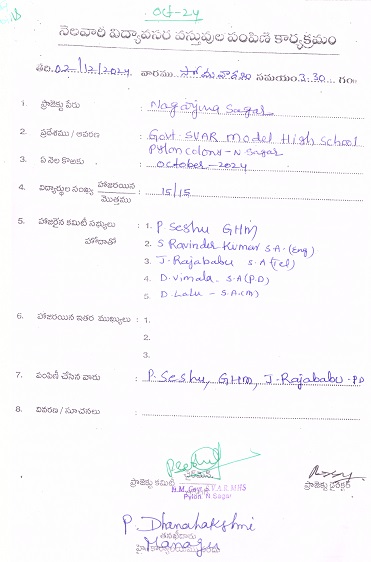 Oct-24
నెలవారీ విద్యావసర వస్తువుల పంపిణి కార్యక్రమం
తేది: 02/12/2024 వారము సోమవారం సమయం: 3.30 గం
1. ప్రాజెక్టు పేరు : Nagarjuna Sagar
2. ప్రదేశము / ఆవరణ : Govt. SVAR Model High School
Pylon colony - N Sagar
3. ఏ నెల కొఱకు : October - 2024
4. విద్యార్థుల సంఖ్య హాజరయిన / మొత్తము : 15/15
5. హాజరైన కమిటీ సభ్యులు : 1. P Seshu GHM
హోదాతో 2. S Ravinder Kumar S.A. (Eng)
3. J. Rajababu S.A (Tel)
4. D. Vimala - S.A (P.D)
5. D Lalu - S.A (m)
6. హాజరయిన ఇతర ముఖ్యులు : 1.
2.
3.
7. పంపిణీ చేసిన వారు : P. Seshu, GHM, J. Rajababu - PD
8. వివరణ / సూచనలు :
ఛైర్మన్
ప్రాజెక్టు కమిటీ
H.M. Govt. S.V.A.R. MHS
Pylon N Sagar
ప్రాజెక్టు డైరెక్టర్
P. Dhanalakshmi
Manager